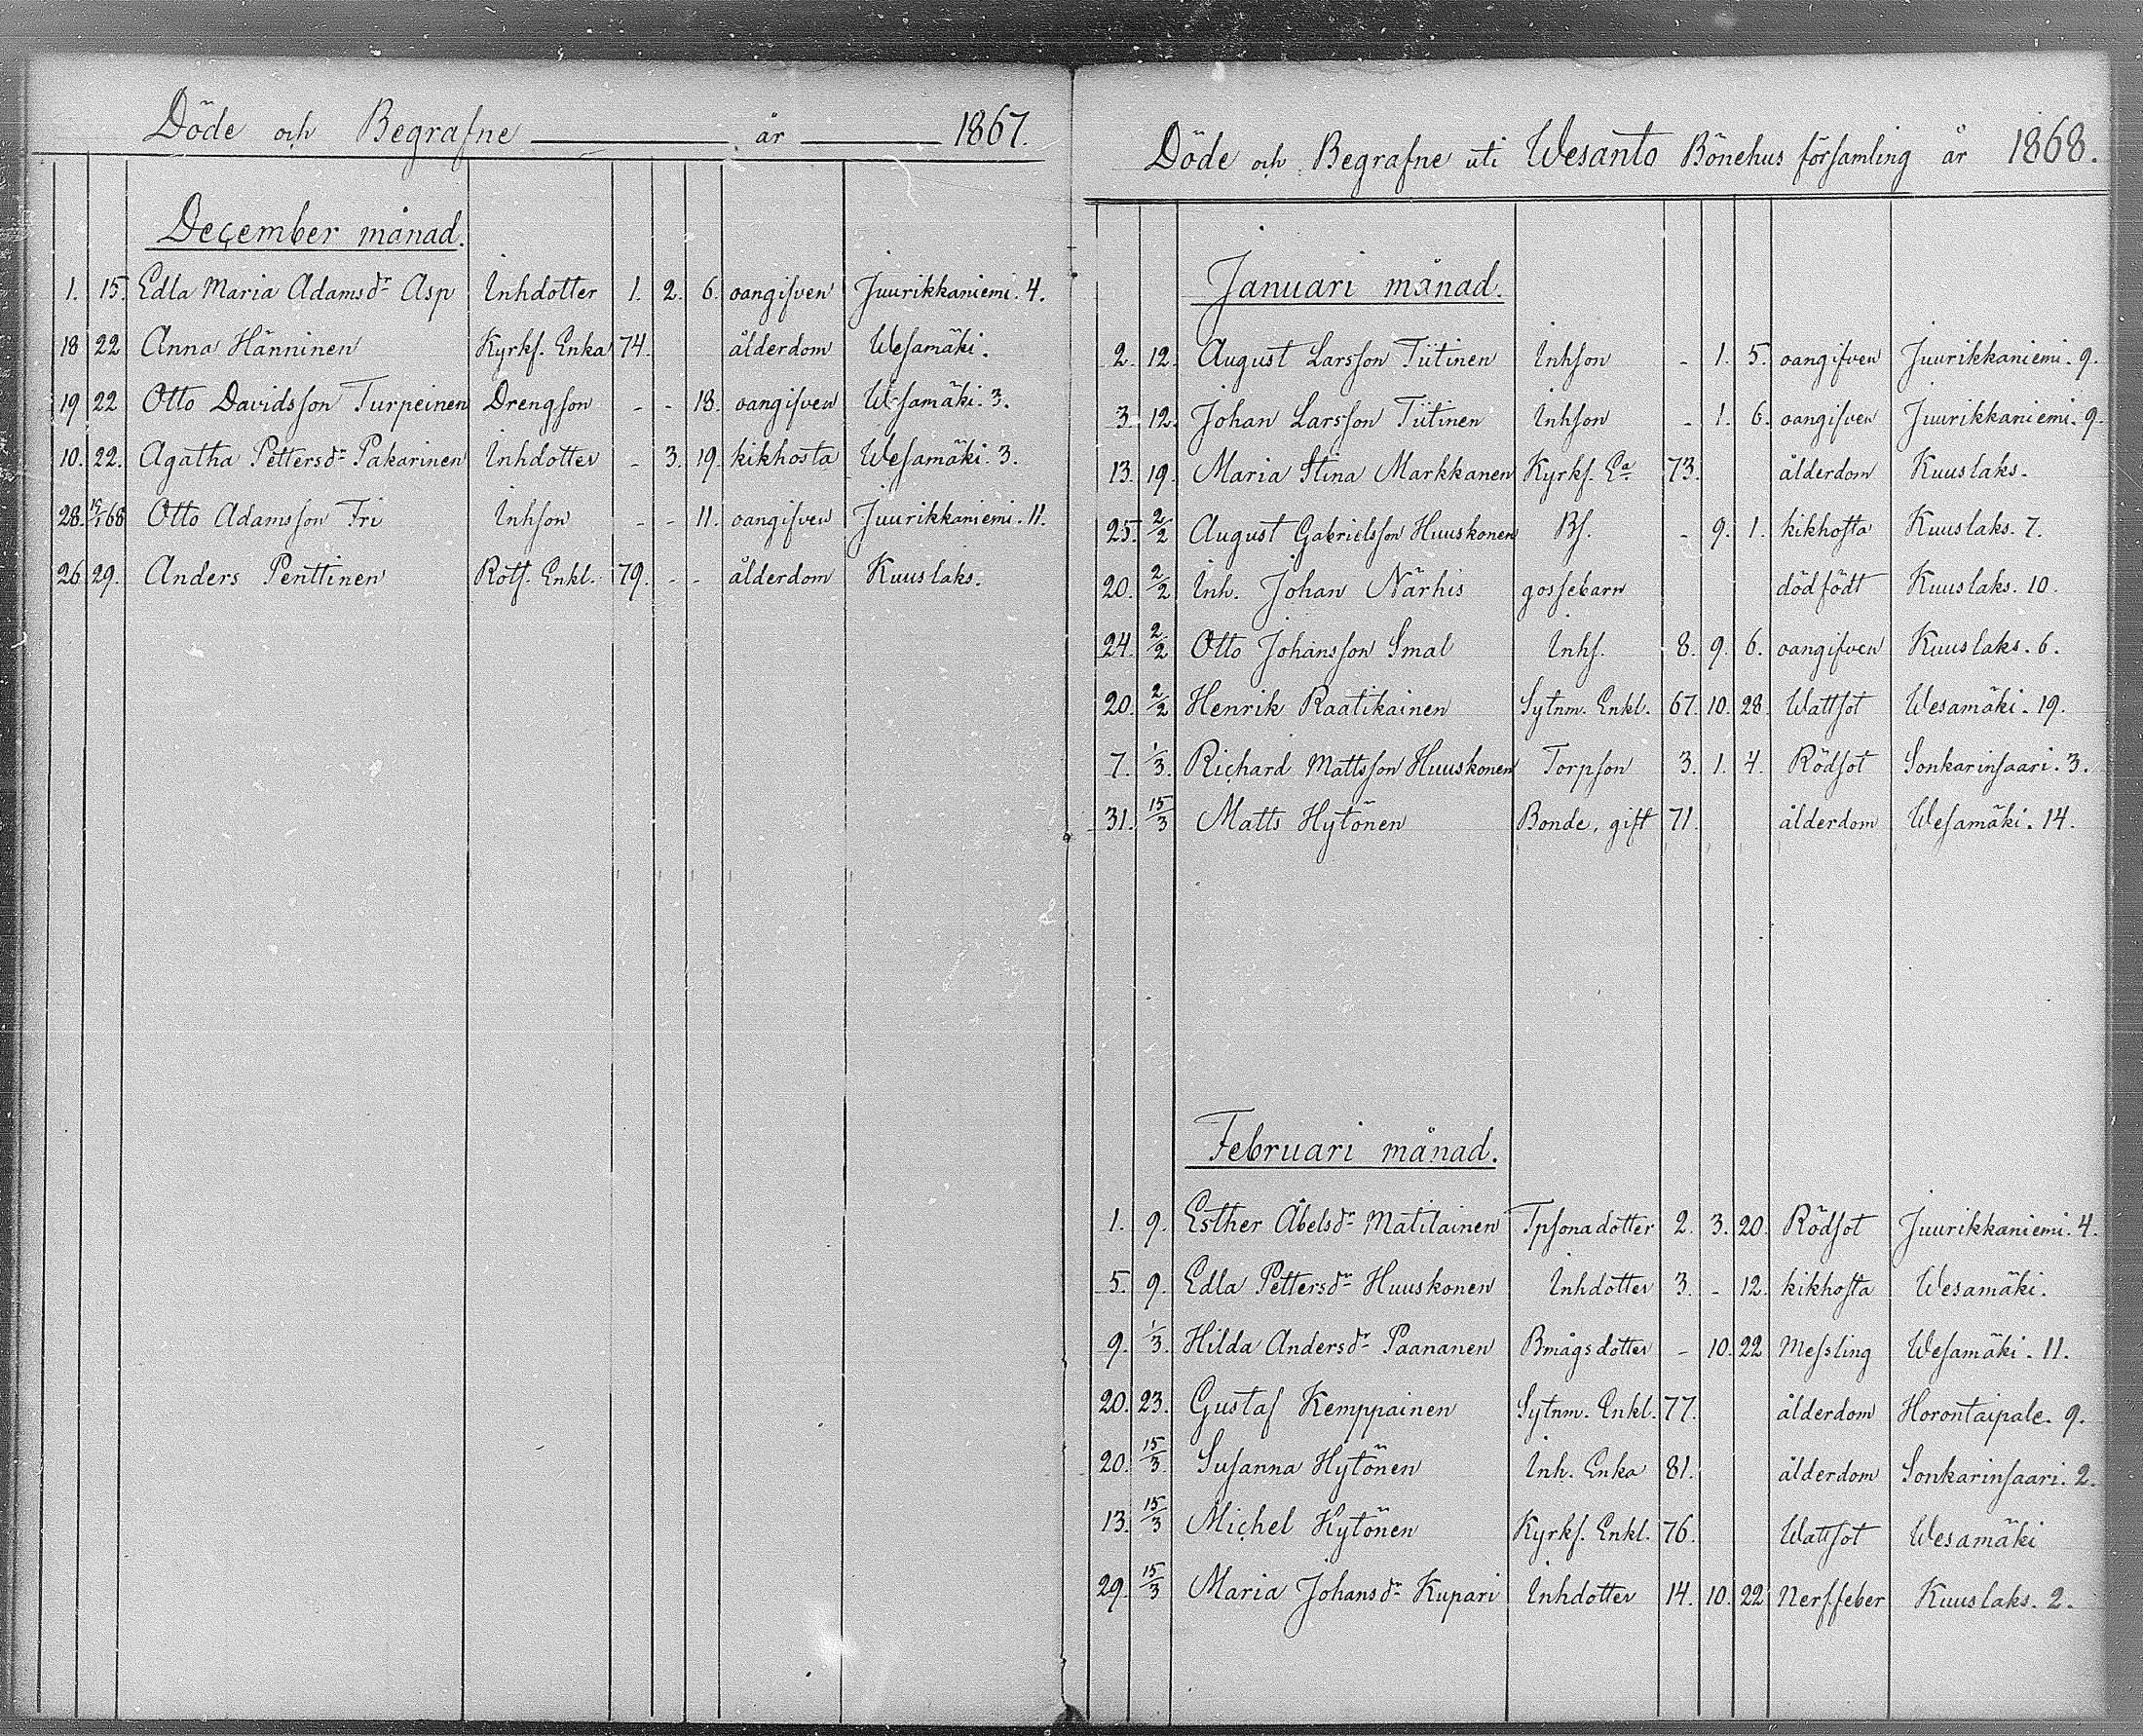 Döde och Begrafne år 1867.
December månad.
1. 15. Edla Maria Adamsdr Asp Inhdotter 1. 2. 6. oangifven Juurikkaniemi. 4.
18 22 Anna Hänninen Kyrkf. Enka 74. ålderdom Wesamäki.
19 22 Otto Davidsson Turpeinen Drengson - - 18. oangifven Wesamäki. 3.
10. 22. Agatha Pettersdr Pakarinen Inhdotter - 3. 19. kikhosta Wesamäki. 3.
28. 12/1 68 Otto Adamsson Fri Inhson - - 11. oangifven Juurikkaniemi. 11.
26 29. Anders Penttinen Rotf. Enkl. 79. - - ålderdom Kuuslaks.
Döde och Begrafne uti Wesanto Bönehus församling år 1868.
Januari månad.
2. 12. August Larsson Tiitinen Inhson - 1. 5. oangifven Juurikkaniemi. 9.
3. 12. Johan Larsson Tiitinen Inhson - 1. 6. oangifven Juurikkaniemi. 9.
13. 19. Maria Stina Markkanen Kyrkf. Ea 73. ålderdom Kuuslaks.
25. 2/2 August Gabrielsson Huuskonen Bs. - 9. 1. kikhosta Kuuslaks. 7.
20. 2/2 Inh. Johan Närhis gossebarn dödfödt Kuuslaks. 10.
24. 2/2 Otto Johansson Smal Inhs. 8. 9. 6. oangifven Kuuslaks. 6.
20. 2/2 Henrik Raatikainen Sytnm. Enkl. 67. 10. 28. Wattsot Wesamäki. 19.
7. 1/3. Richard Mattsson Huuskonen Torpson 3. 1. 4. Rödsot Sonkarinsaari. 3.
31. 15/3 Matts Hytönen Bonde, gift 71. ålderdom Wesamäki. 14.
Februari månad.
1. 9. Esther Abelsdr Matilainen Tpsonadotter 2. 3. 20. Rödsot Juurikkaniemi. 4.
5. 9. Edla Pettersdr Huuskonen Inhdotter 3. - 12. kikhosta Wesamäki.
9. 1/3. Hilda Andersdr Paananen Bmågsdotter - 10. 22 Messling Wesamäki. 11.
20. 23. Gustaf Kemppainen Sytnm. Enkl. 77. ålderdom Horontaipale. 9.
20. 15/3. Susanna Hytönen Inh. Enka 81. ålderdom Sonkarinsaari. 2.
13. 15/3 Michel Hytönen Kyrkf. Enkl. 76. Wattsot Wesamäki
29. 15/3 Maria Johansdr Kupari Inhdotter 14. 10. 22 Nerffeber Kuuslaks. 2.